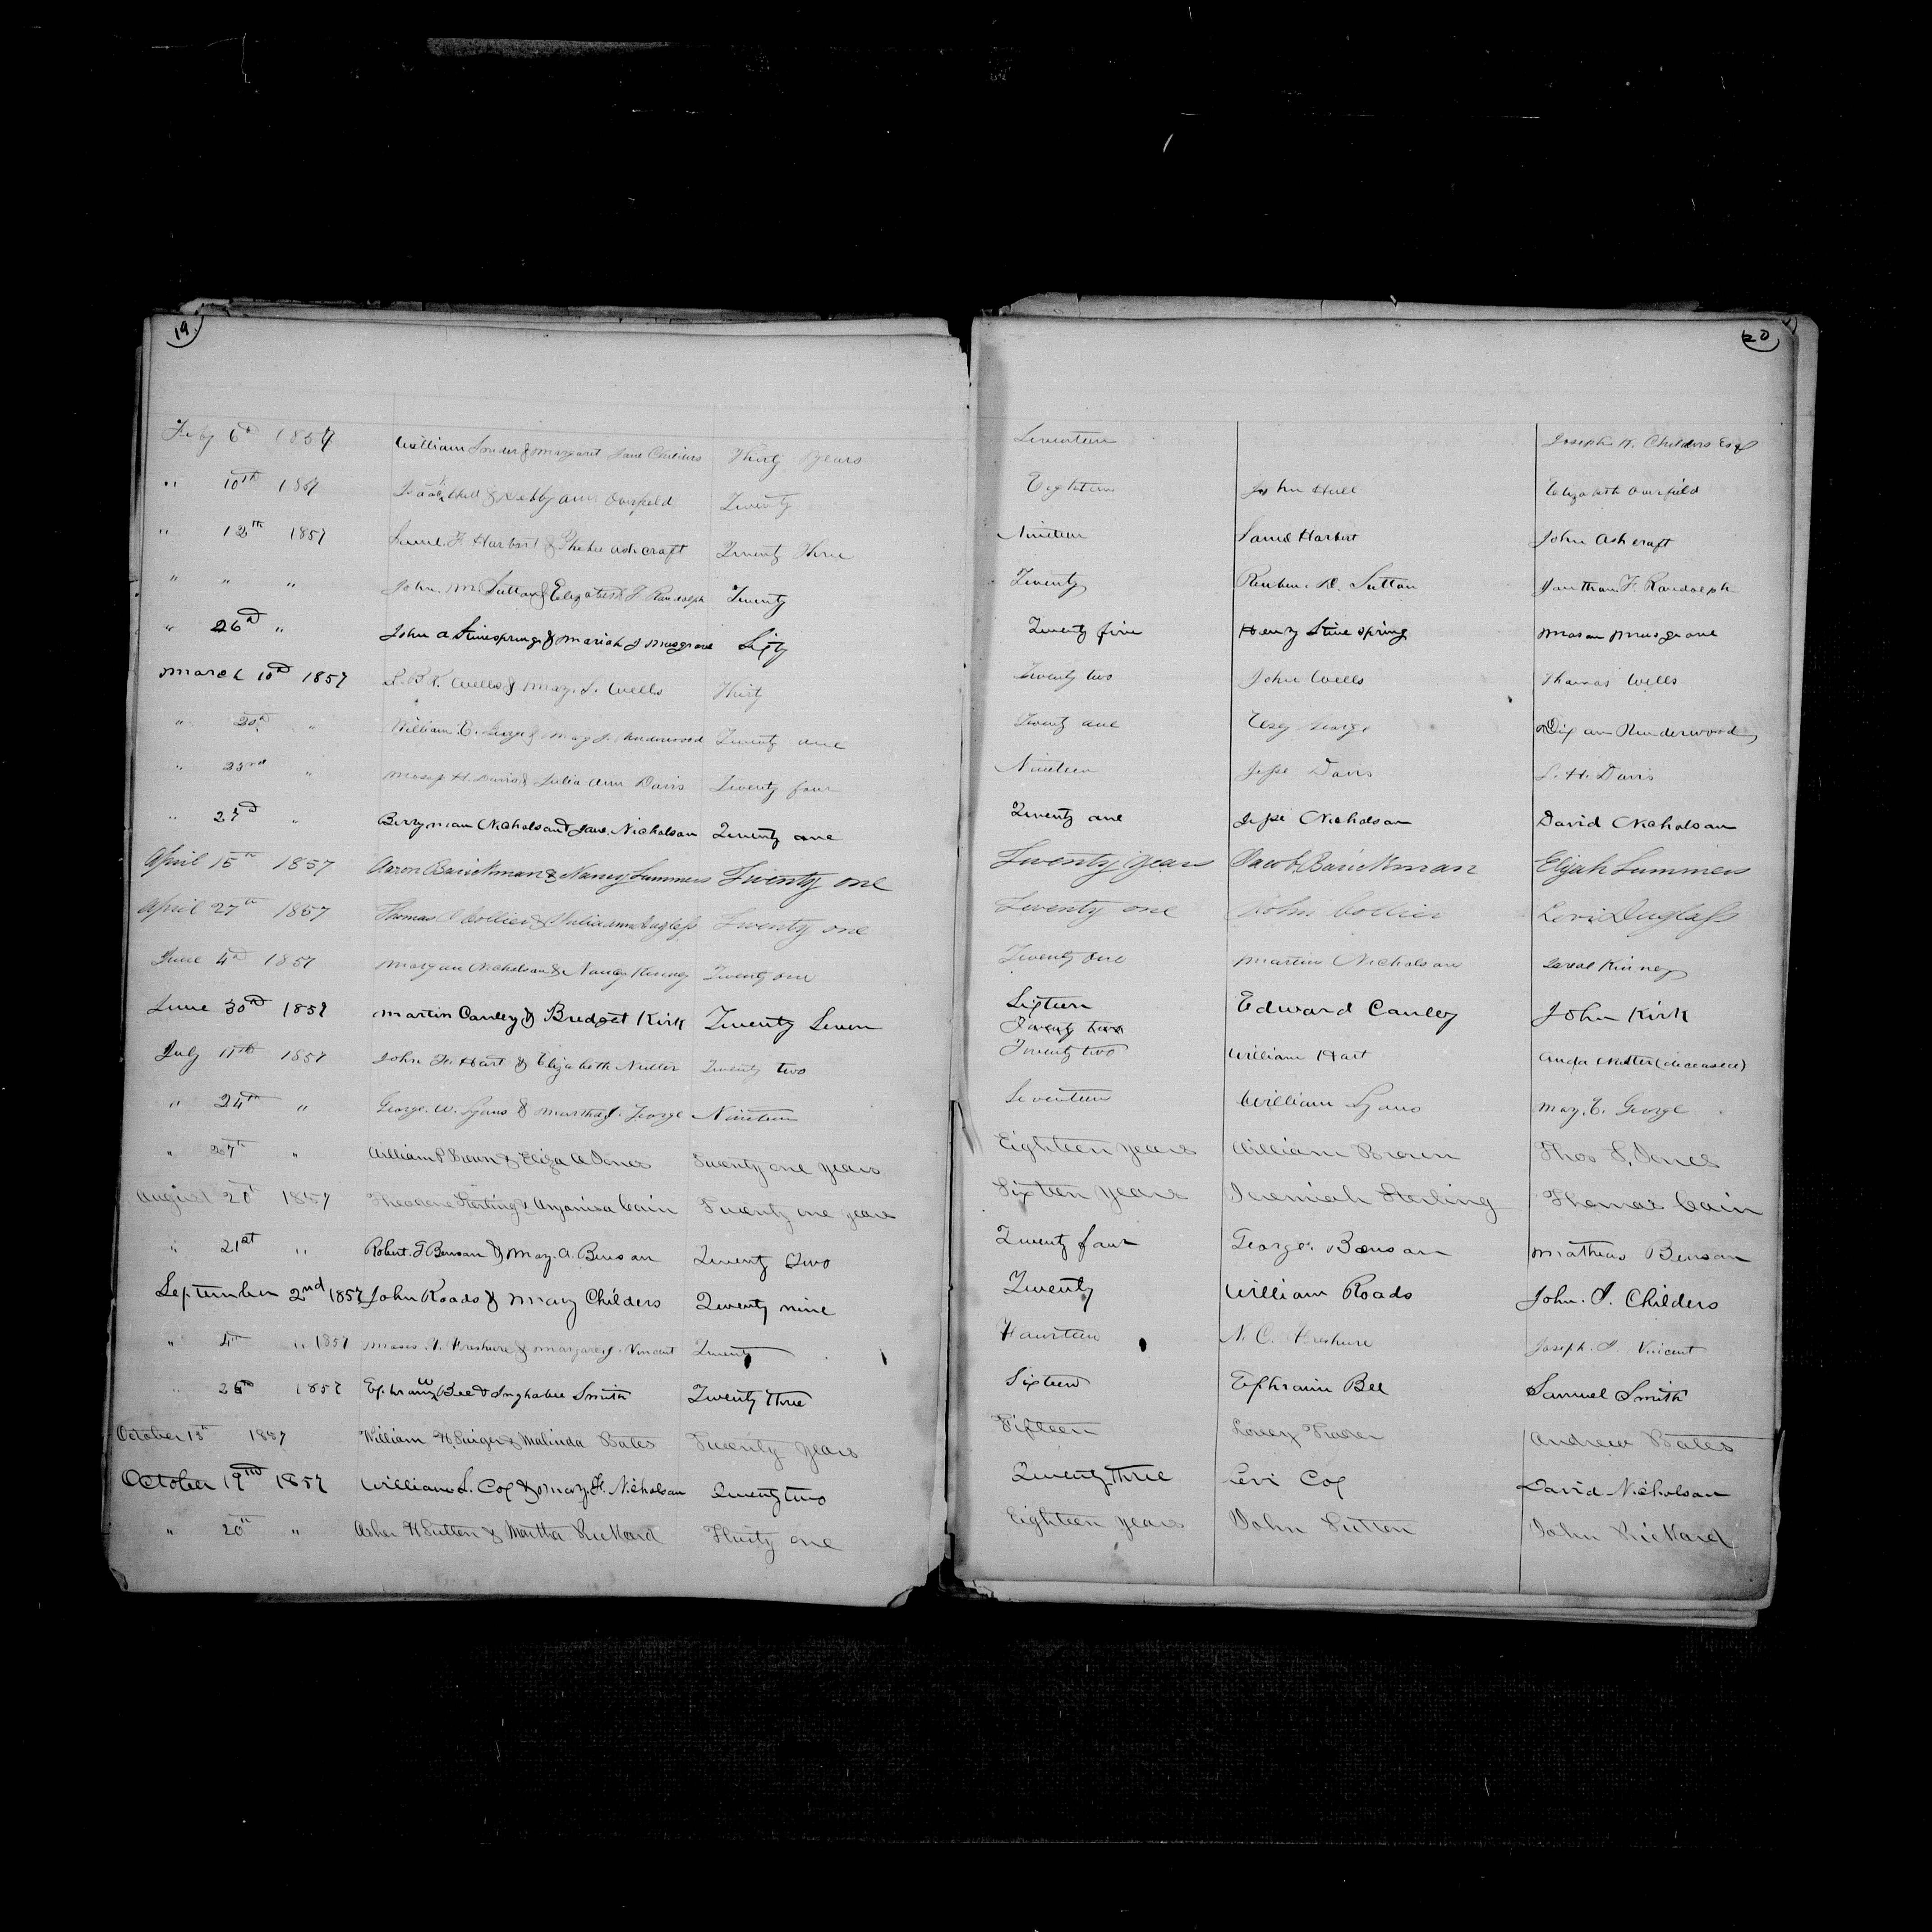 19
20
Feby 6th 1857 William Snider & Margaret Jane Childers Thirty years Seventeen Joseph N. Childers Esqr
" 10th 1857 Hull & Debby Ann Overfield Twenty Eighteen John Hull Elizabeth Overfield
" 12th 1857 Saml. F. Harbert & Phebe Ashcraft Twenty Three Nineteen Saml Harbert John Ashcraft
" " " John. M. Sutton & Elizabeth F Randolph Twenty Twenty Reuben. D. Sutton Jonathan F. Randolph
" 26th " John A Stinespring & Mariah J Musgrove Sixty Twenty five Henry Stinespring Mason Musgrove
March 10th 1857 L. B. K. Wells & Mary. S. Wells Thirty Twenty two John Wells Thomas Wells
" 20th " William. B. George & Mary J. Underwood Twenty one Twenty one George Underwood
" 23rd " H. Davis & Julia Ann Davis Twenty four Nineteen Jesse Davis S. H. Davis
" 27th " Berryman Nicholson & Jane Nicholson Twenty one Twenty one Jesse Nicholson David Nicholson
April 15th 1857 Aaron Barickman & Nancy Summers Twenty one Twenty years Jacob Barickman Elijah Summers
April 27th 1857 Thomas Collier & Juliaann Duglass Twenty one Twenty one John Collier Levi Duglass
June 4th 1857 Morgan Nicholson & Nancy Kinney Twenty one Twenty one Martin Nicholson Kinney
June 30th 1857 Martin Canley & Bridget Kirk Twenty Seven Sixteen Edward Canley John Kirk
Twenty two
July 11th 1857 John H. Hart & Elizabeth Nutter Twenty two Twenty two William Hart Nutter (deceased)
" 24th " George. W. Lyons & Martha J. George Nineteen Seventeen William Lyons May. E. George
" 27th " William P Brown & Eliza A Jones Twenty one years Eighteen years William Brown Thos S. Jones
August 20th 1857 Theodore Sterling & Cain Twenty one years Sixteen years Jeremiah Sterling Thomas Cain
" 21st " Robert. T Benson & Mary. A. Benson Twenty Two Twenty four George Benson Mathew Benson
September 2nd 1857 John Roads & Mary Childers Twenty nine Twenty William Roads John. J. Childers
" 4th " 1857 Moses Freshure & Margaret J. Vincent Twenty Fourteen N. C. Freshure Joseph. J. Vincent
" 26th 1857 Ephraim W Bee & Smith Twenty three Sixteen Ephraim Bee Samuel Smith
October 15th 1857 William H. & Malinda Bates Twenty years Fifteen Andrew Bates
October 19th 1857 William L. Cox & Mary. F. Nicholson Twenty two Twenty three Levi Cox David Nicholson
" 20th " Asher H Sutton & Martha Rickard Thirty one Eighteen years John Sutton John Rickard